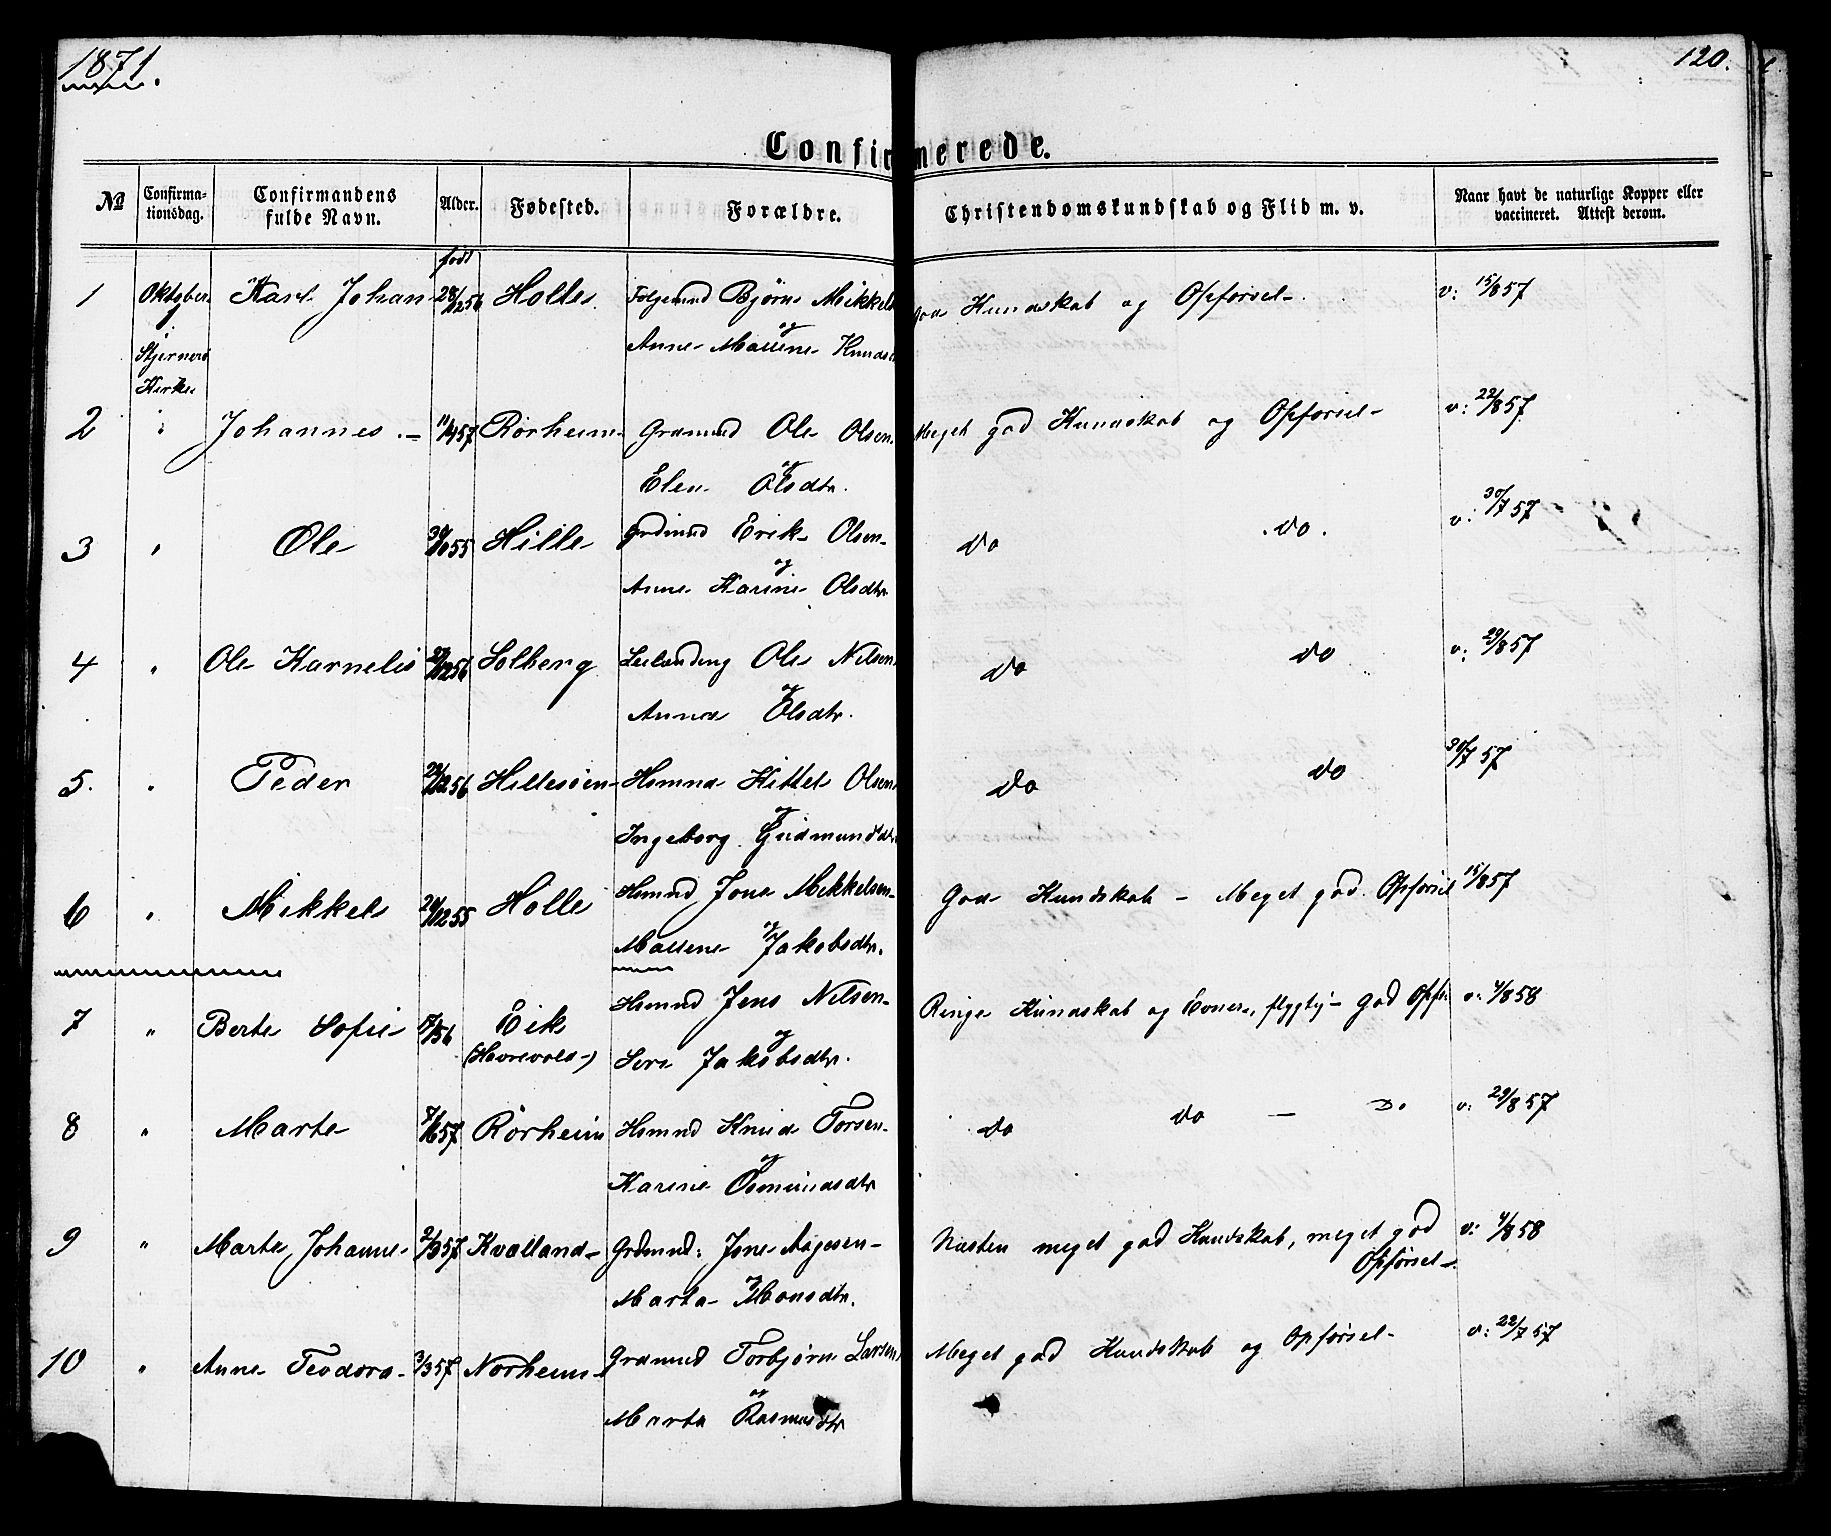 1871.
120.
Confirmerede.
№ Confirma-tionsdag. Confirmandens fulde Navn. Alder. Fødested. Forældre. Christendomskundskab og Flid m. v. Naar havt de naturlige Kopper eller vaccineret. Attest derom.
født
1 Oktober Karl Johan 28/12 56 Holle Bjørn Mikkels God Kundskab og Opførsel v: 15/8 57
i og
Stjernerø Anne Mallene Knuds
Kirke
2 " Johannes 11/4 57 Rørheim Grdmnd Ole Olsen Meget god Kundskab og Opførsel v: 22/8 57
og
Elen Olsdtr.
3 " Ole 30/10 55 Hille Grdmnd Erik Olsen do do. v: 30/7 57
og
Anne Karine Olsdtr
4 " Ole Karnelis 12 56 Solberg Leilænding Ole Nilsen do do v: 29/8 57
og
Anna Olsdtr.
5. " Peder 12 56 Hillesøen Hsmnd Kittel Olsen do do 30/7 57
og
Ingeborg Gudmundsdtr
6 " Mikkel 12 55 Holle Hsmnd Jone Mikkelsen God Kundskab - Meget god Opførsel 15/8 57
og
Mallene Jakobsdtr.
7 " Berte Sofie 56 Eik Hsmnd Jens Nilsen Ringe Kundskab og Evner, flygtig - God Opfø v: 4/8 58
og
Jakobsdtr.
8 " Marte 7/6 57 Rørheim Hsmnd Knud Torsen do do — Do v: 29/8 57
og
Karine Osmundsdtr
9 " Marte Johanne 2/9 57 Kvalland Grdmnd: Jone Aagesen Næsten meget god Kundskab, meget god v: 4/8 58
og Opførsel
Marta Monsdtr.
10 " Anne Teodora 3/3 57 Norheim Grdmnd Torbjørn Larsen Meget god Kundskab og Opførsel v: 22/7 57
og
Marta Rasmusdtr